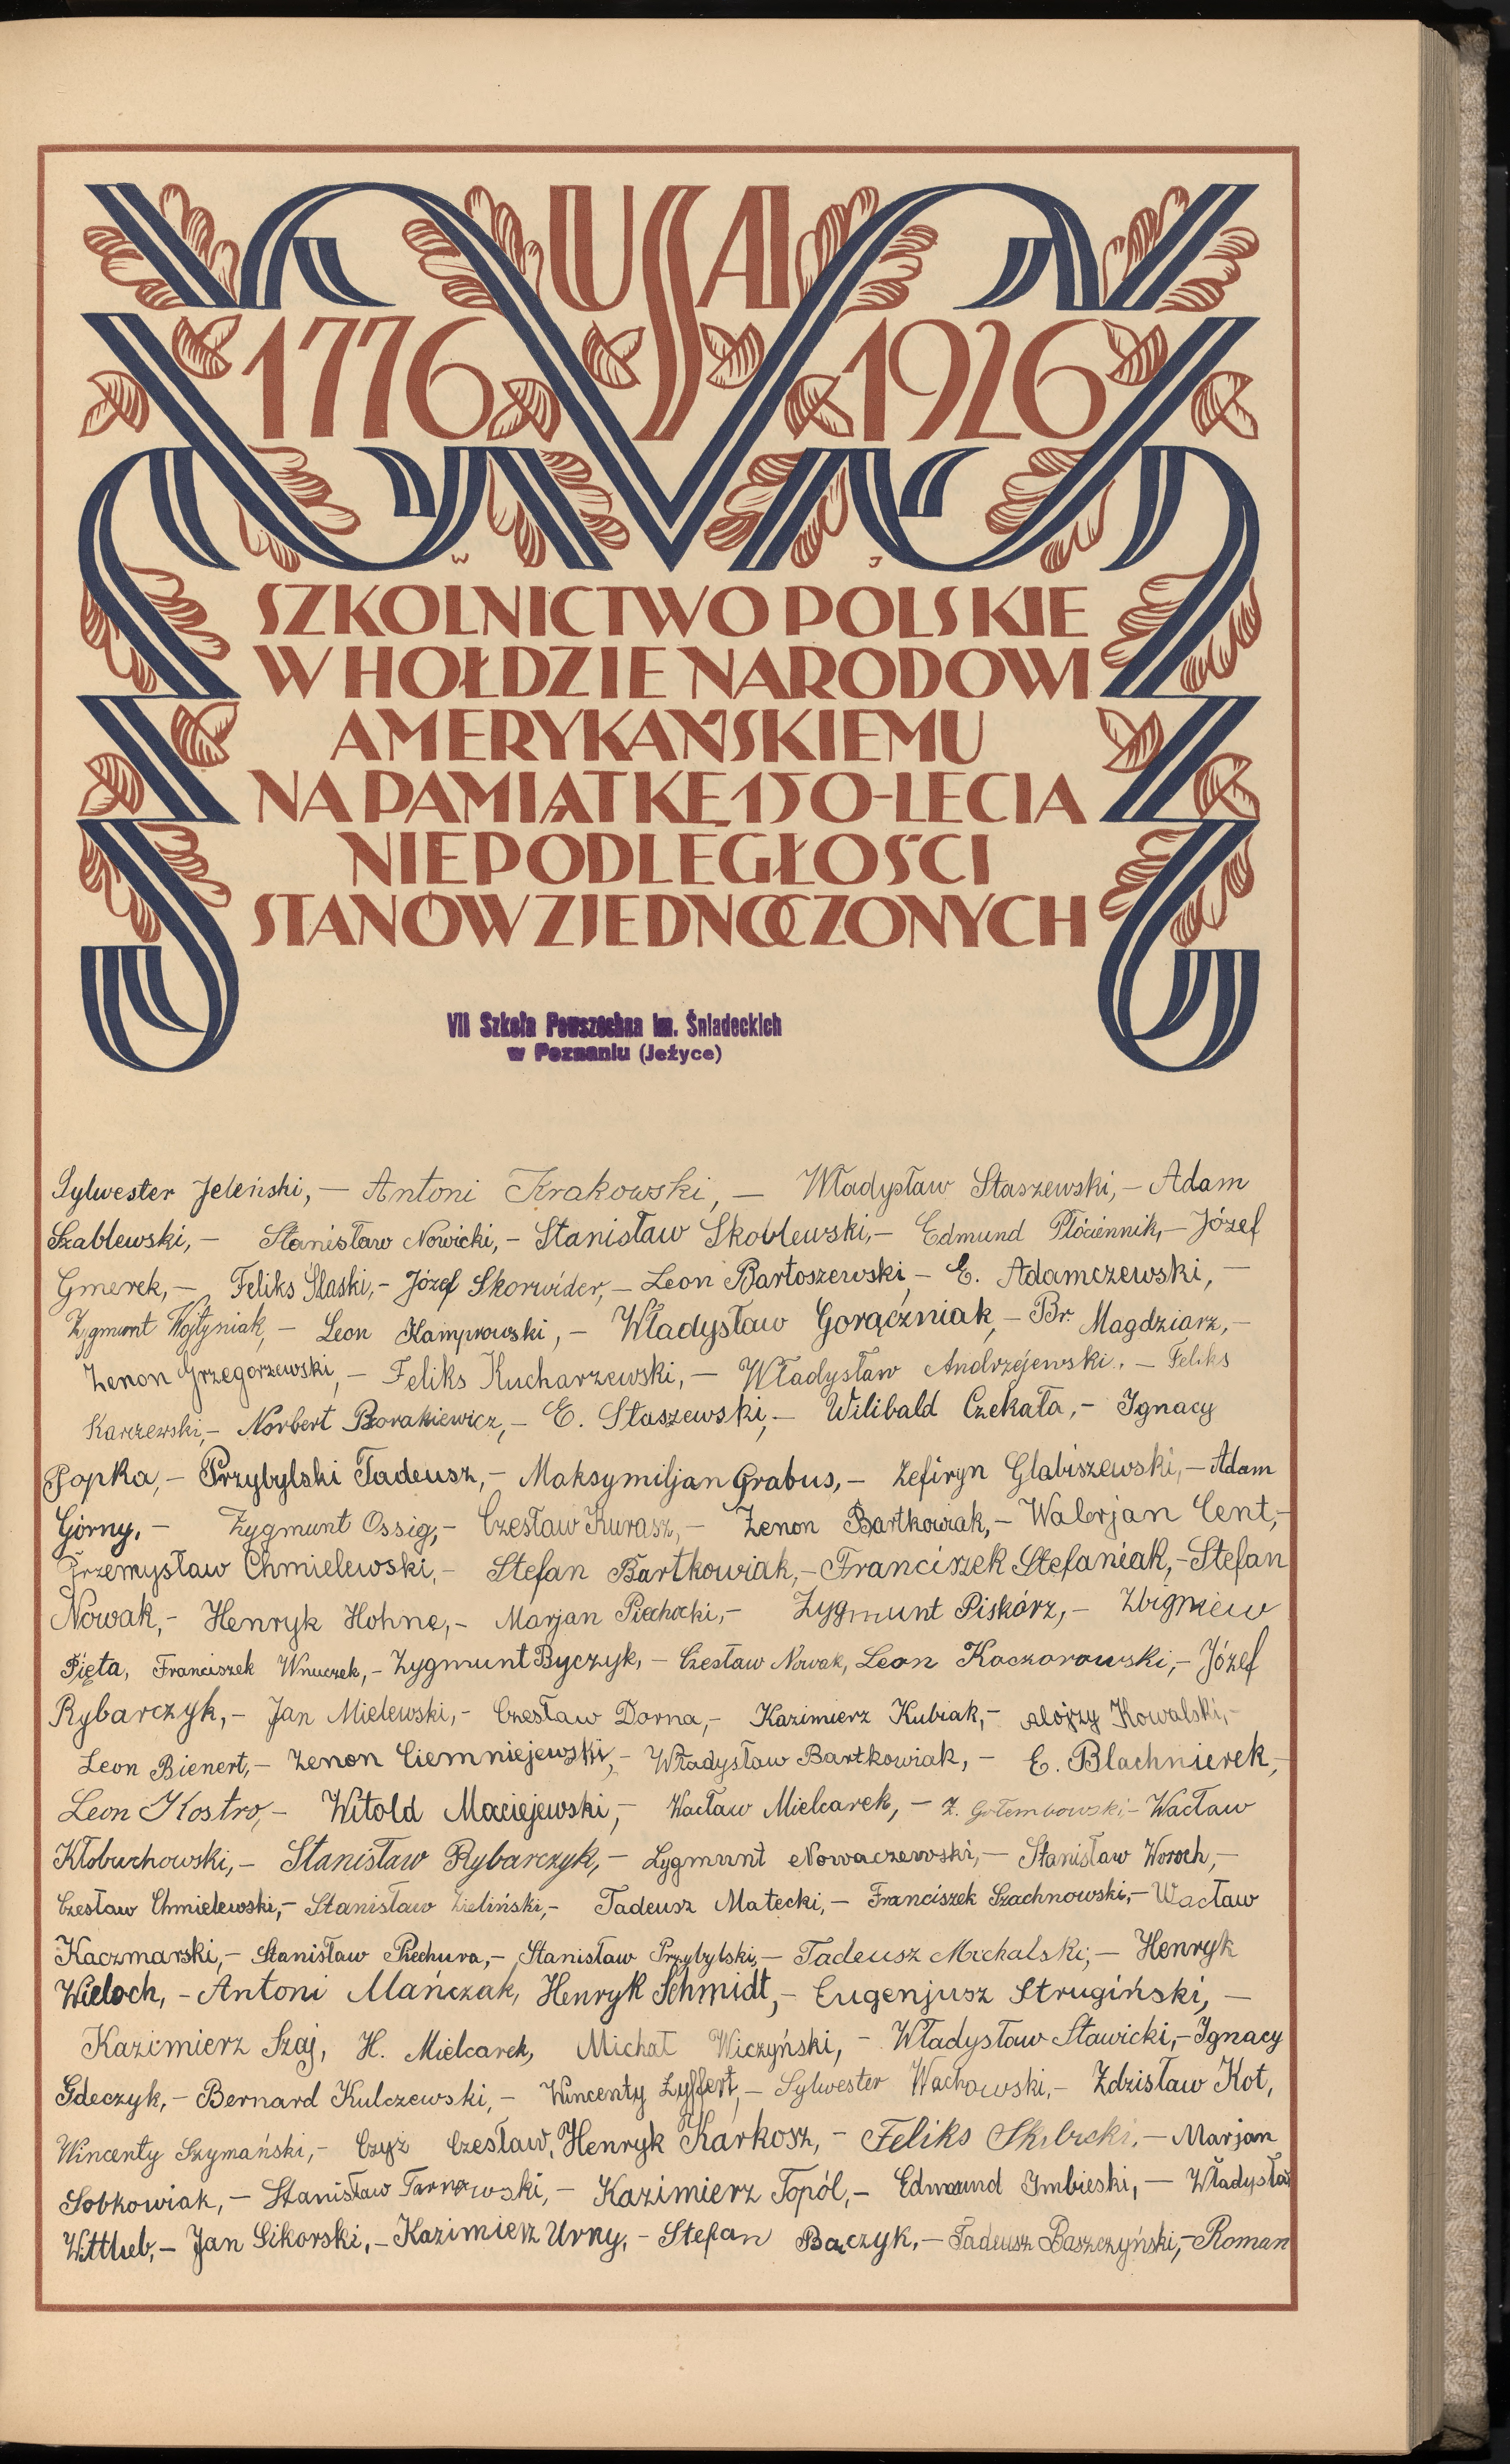 USA
1776 1926
W J
SZKOLNICTWO POLSKIE
W HOŁDZIE NARODOWI
AMERYKAŃSKIEMU
NA PAMIĄTKĘ 150-LECIA
NIEPODLEGŁOŚCI
STANÓW ZJEDNOCZONYCH
VII Szkoła Powszechna im. Śniadeckich
w Poznaniu (Jeżyce)
Sylwester Jeleński, – Antoni Krakowski, – Władysław Staszewski, – Adam
Szablewski, – Stanisław Nowicki, – Stanisław Skoblewski, – Edmund Płóciennik, – Józef
Gmerek, – Feliks Ślaski, – Józef Skorwider, – Leon Bartoszewski, – E. Adamczewski, –
Zygmunt Wojtyniak, – Leon Kamprowski, – Władysław Gorączniak, – Br. Magdziarz, –
Zenon Grzegorzewski, – Feliks Kucharzewski, – Władysław Andrzejewski, – Feliks
Karczewski, – Norbert Borakiewicz, – E. Staszewski, – Wilibald Czekała, – Ignacy
Popka, – Przybylski Tadeusz, – Maksymiljan Grabus, – Zefiryn Glabiszewski, – Adam
Górny, – Zygmunt Ossig, – Czesław Kurasz, – Zenon Bartkowiak, – Walerjan Cent, –
Przemysław Chmielewski, – Stefan Bartkowiak, – Franciszek Stefaniak, – Stefan
Nowak, – Henryk Hohne, – Marjan Piechocki, – Zygmunt Piskórz, – Zbigniew
Pięta, Franciszek Wnuczek, – Zygmunt Byczyk, – Czesław Nowak, Leon Kaczorowski, – Józef
Rybarczyk, – Jan Mielewski, – Czesław Dorna, – Kazimierz Kubiak, – Alojzy Kowalski, –
Leon Bienert, – Zenon Ciemniejewski, – Władysław Bartkowiak, – E. Blachnierek, –
Leon Kostro, – Witold Maciejewski, – Wacław Mielcarek, – Z. Gołembowski – Wacław
Kłobuchowski, – Stanisław Rybarczyk, – Zygmunt Nowaczewski, – Stanisław Woroch, –
Czesław Chmielewski, – Stanisław Zieliński, – Tadeusz Małecki, – Franciszek Szachnowski, – Wacław
Kaczmarski, – Stanisław Piechura, – Stanisław Przybylski, – Tadeusz Michalski, – Henryk
Wieloch, – Antoni Mańczak, Henryk Schmidt, – Eugenjusz Strugiński, –
Kazimierz Szaj, H. Mielcarek, Michał Wiczyński, – Władysław Stawicki, – Ignacy
Gdeczyk, – Bernard Kulczewski, – Wincenty Zyffert, – Sylwester Wachowski, – Zdzisław Kot,
Wincenty Szymański, – Czyż Czesław, Henryk Karkosz, – Feliks Skibicki, – Marjan
Sobkowiak, – Stanisław Tarnowski, – Kazimierz Topól, – Edmund Imbieski, – Władysław
Wittlieb, – Jan Sikorski, – Kazimierz Urny, – Stefan Bączyk, – Tadeusz Baszczyński, – Roman